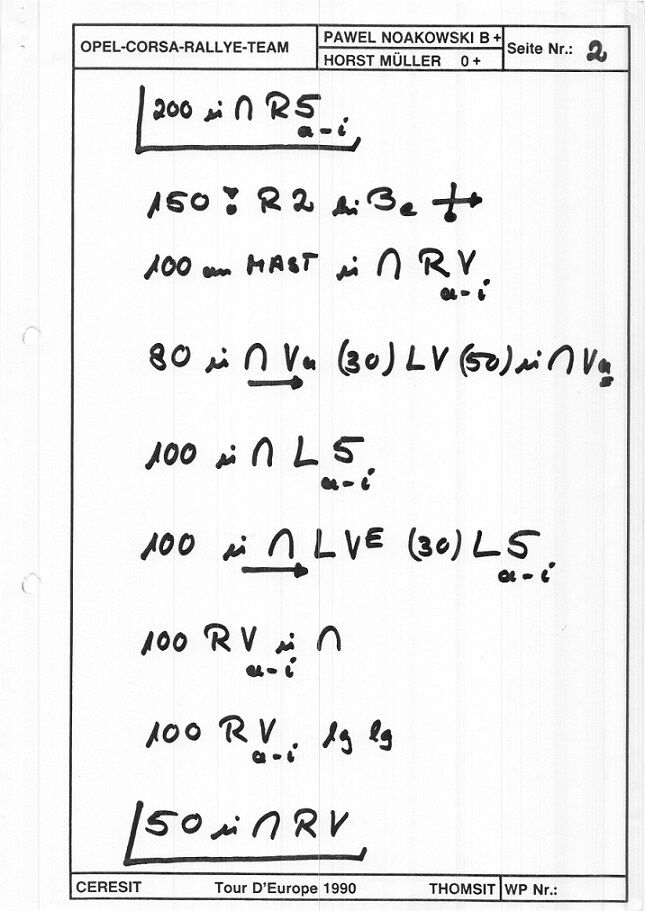 OPEL-CORSA-RALLYE-TEAM
PAWEL NOAKOWSKI B +
HORST MÜLLER 0 +
Seite Nr.: 2
200 ü ∩ R5 a-i
150 R2 Be
100 an MAST ü ∩ RV a-i
80 ü ∩ Vu (30) LV (50) ü ∩ Vu
100 ü ∩ L5 a-i
100 ü ∩ LVE (30) L5 a-i
100 RV a-i ü ∩
100 RV a-i lg lg
50 ü ∩ RV
CERESIT Tour D'Europe 1990 THOMSIT WP Nr.: